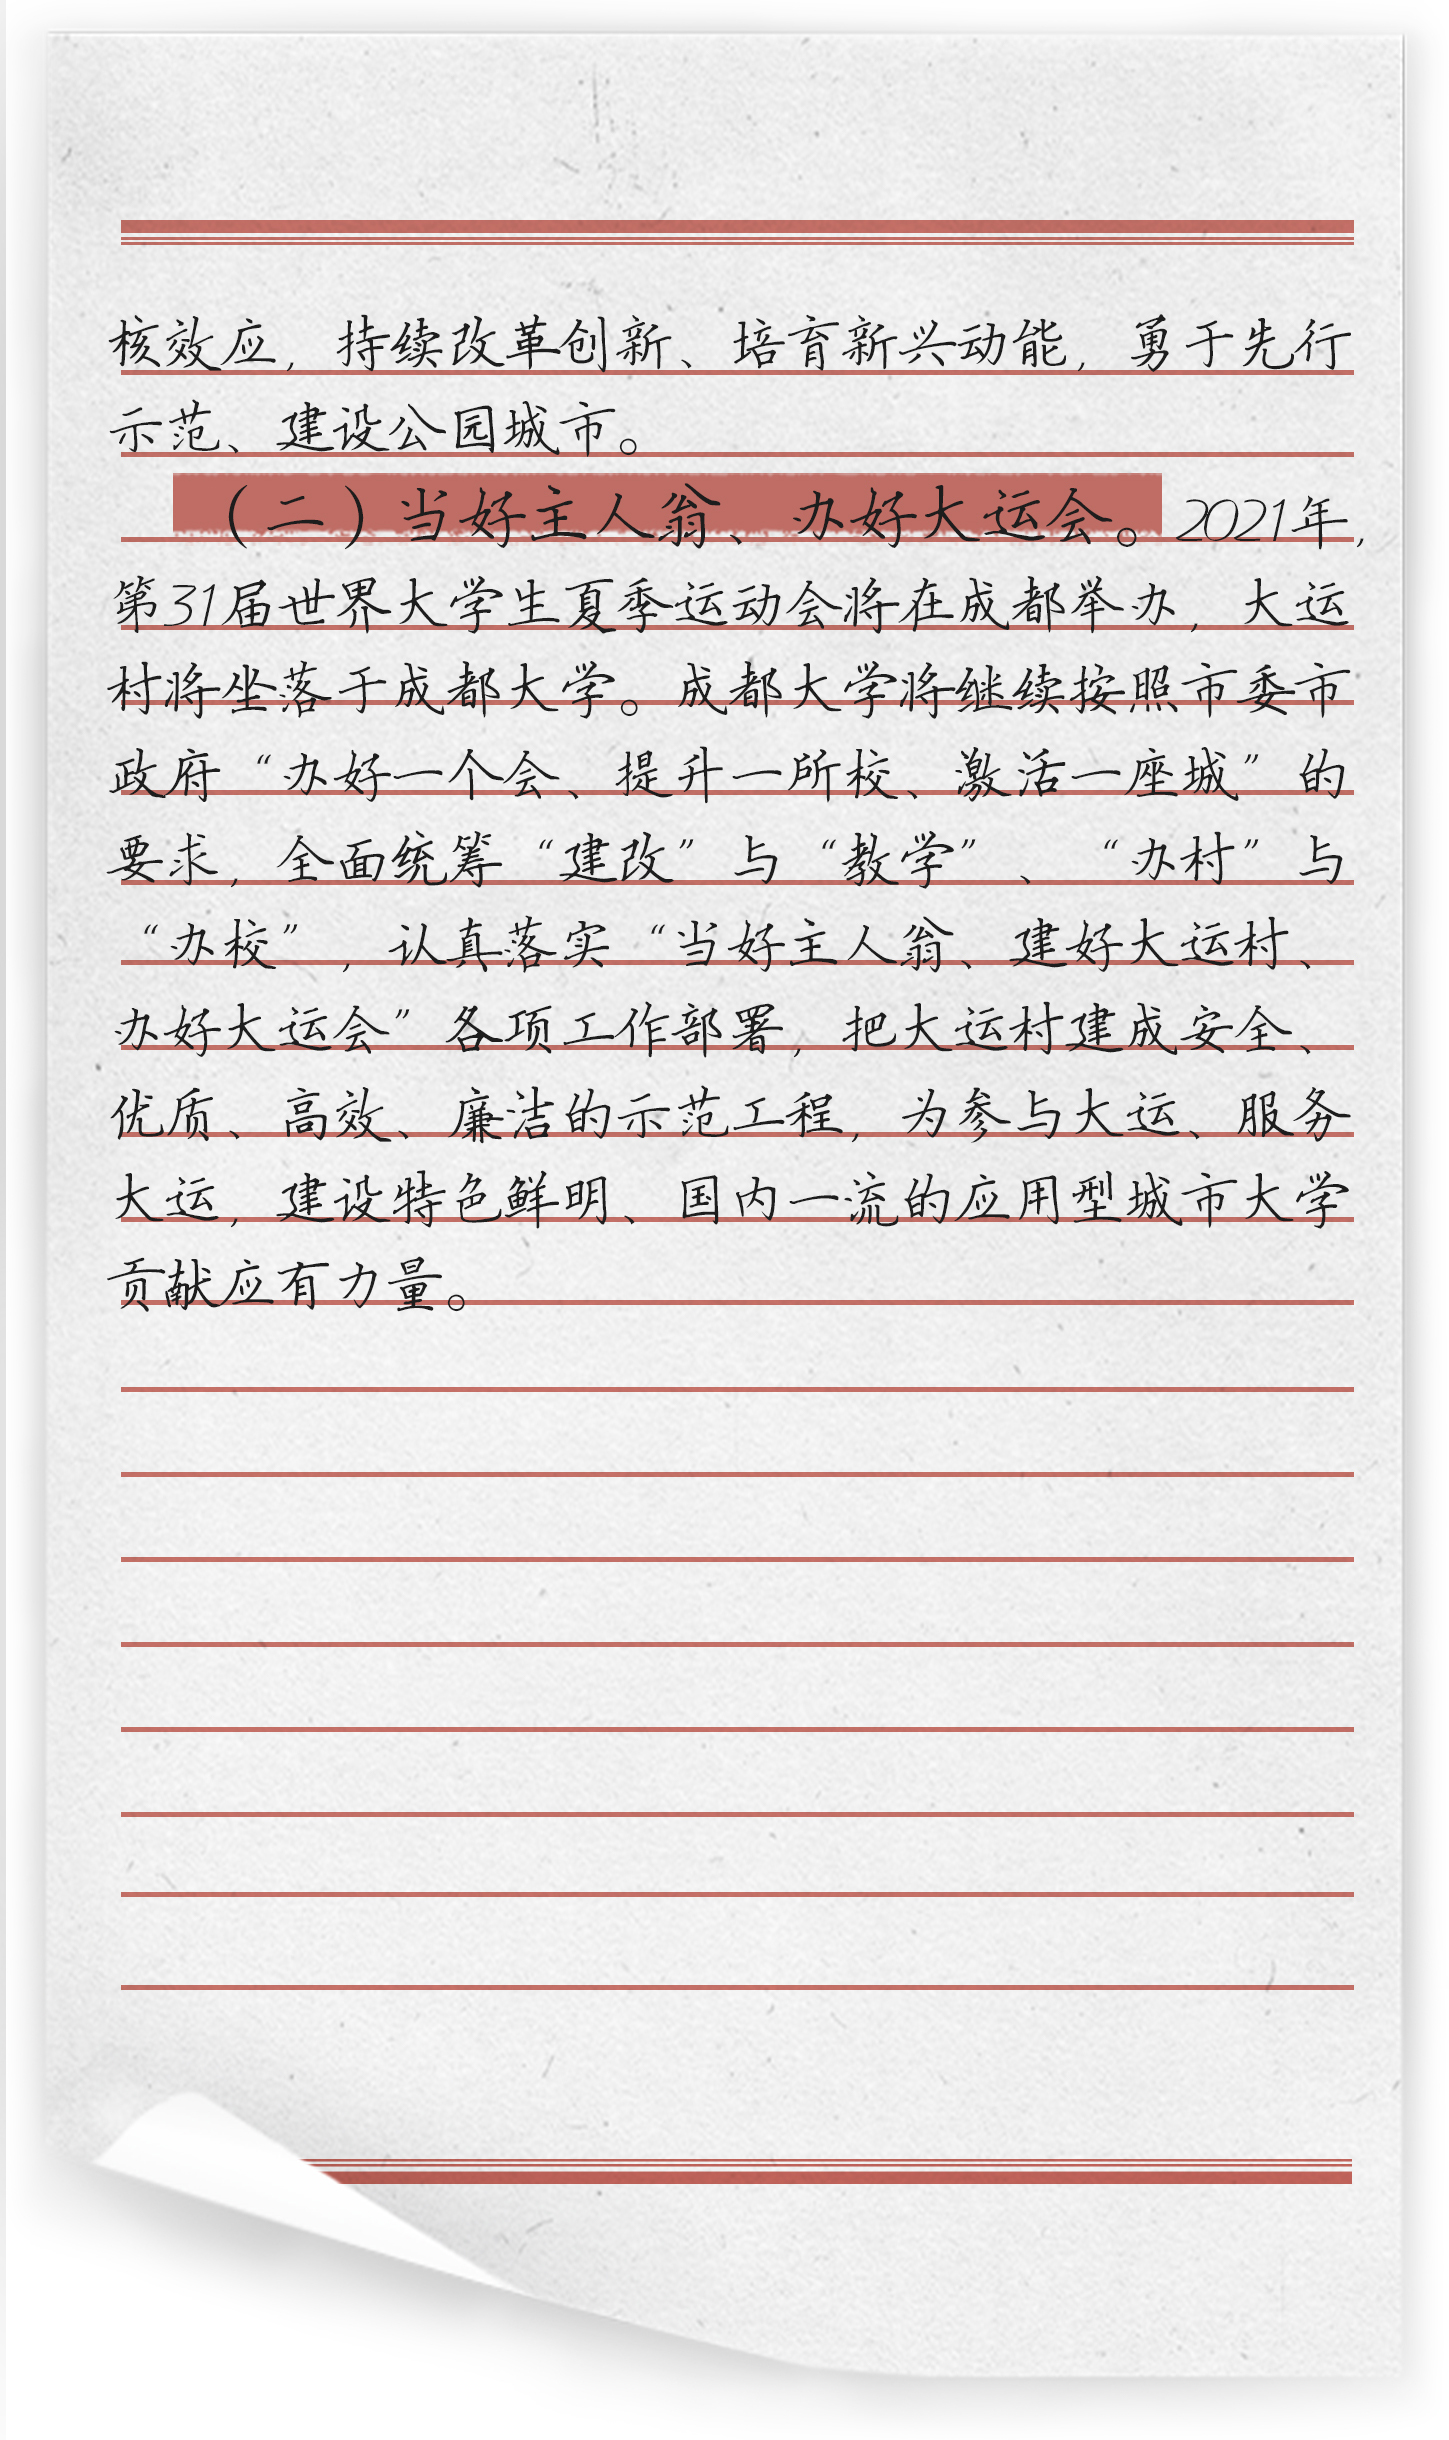 核效应，持续改革创新、培育新兴动能，勇于先行
示范、建设公园城市。
（二）当好主人翁、办好大运会。2021年，
第31届世界大学生夏季运动会将在成都举办，大运
村将坐落于成都大学。成都大学将继续按照市委市
政府“办好一个会、提升一所校、激活一座城”的
要求，全面统筹“建改”与“教学”、“办村”与
“办校”，认真落实“当好主人翁、建好大运村、
办好大运会”各项工作部署，把大运村建成安全、
优质、高效、廉洁的示范工程，为参与大运、服务
大运，建设特色鲜明、国内一流的应用型城市大学
贡献应有力量。